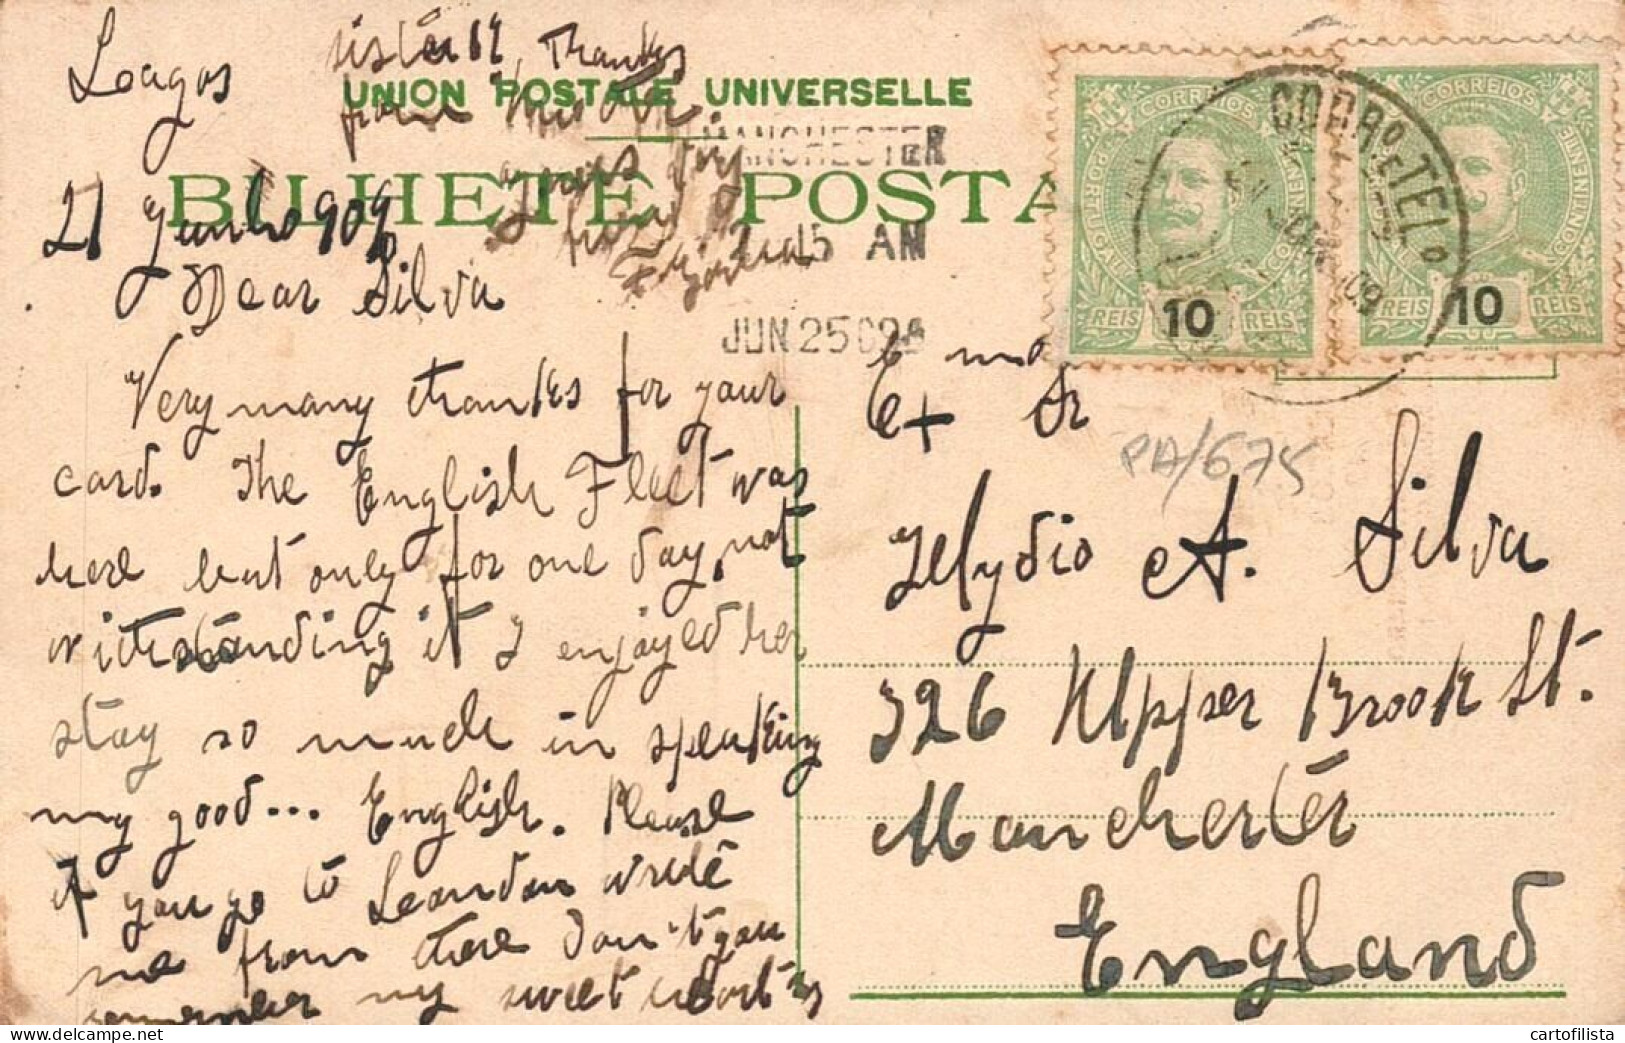 Lagos
21 Junho 909
Dear Silva
Very many thanks for your
card. The English Fleet was
here but only for one day, not
withstanding it I enjoyed her
stay so much in speaking
my good... English. Please
if you go to London write
me from there Don't you
remember my sweet
Thanks
from
UNION POSTALE UNIVERSELLE
BILHETE POSTA
MANCHESTER
15 AM
JUN 25 09
CORREIOS
PORTUGAL
CONTINENTE
REIS 10 REIS
CORREIOS
CONTINENTE
REIS 10 REIS
CORRO E TELO
909
PA/675
Ex Sr
Ilydio A. Silva
326 Upper Brook St.
Manchester
England
cartofilista